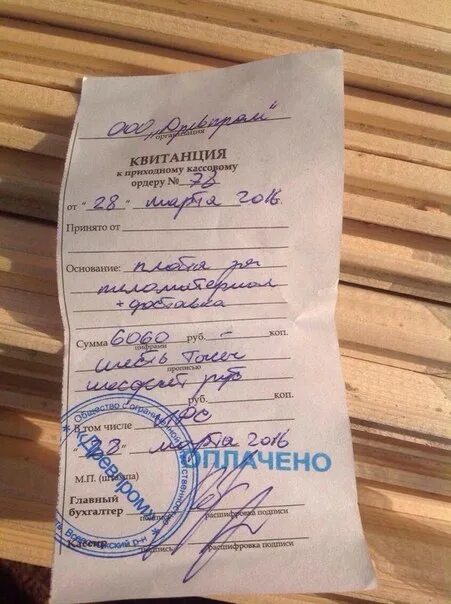 ООО „Древпром"
организация
КВИТАНЦИЯ
к приходному кассовому
ордеру № 76
от "28" марта 2016
Принято от
Основание: плата за
пиломатериал
+ доставка
Сумма 6060 руб. – коп.
цифрами
шесть тысяч
прописью
шестьдесят руб
руб. коп.
В том числе НДС
"28" марта 2016
ОПЛАЧЕНО
М.П. (штампа)
Главный
бухгалтер
подпись расшифровка подписи
Кассир
подпись расшифровка подписи
Общество с ограниченной ответственностью
«Древпром»